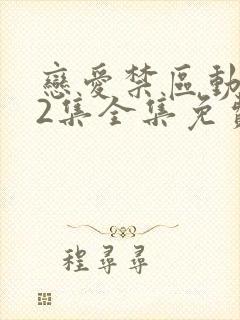 戀愛禁區動
2集全集免費
程尋尋